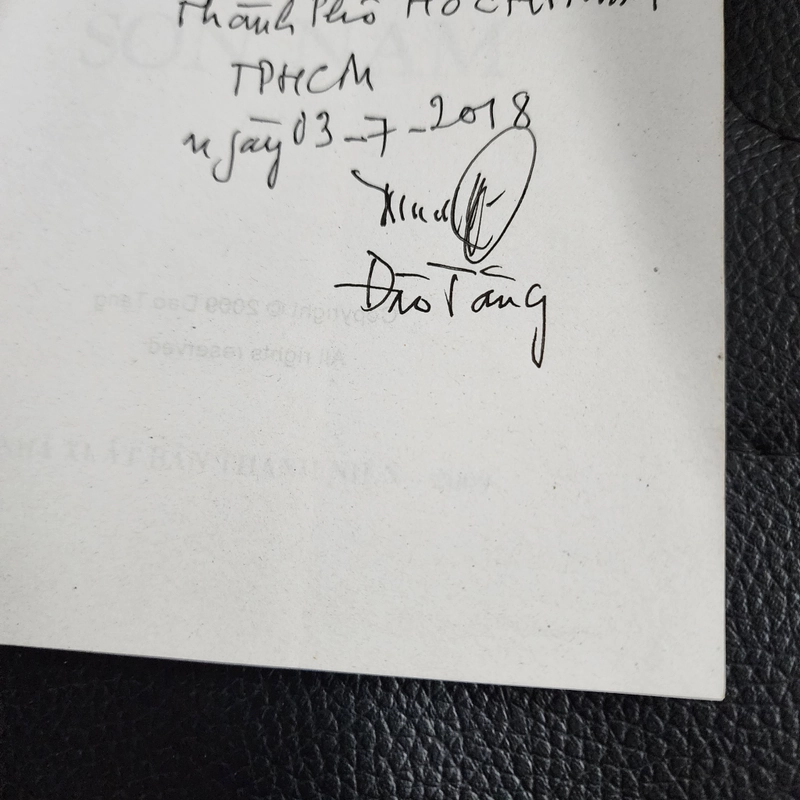 SƠN NAM
Thành Phố HỒ CHÍ MINH
TPHCM
ngày 03-7-2018
Đào Tăng
Copyright © 2009 Dao Tang
All rights reserved
NHÀ XUẤT BẢN THANH NIÊN - 2009